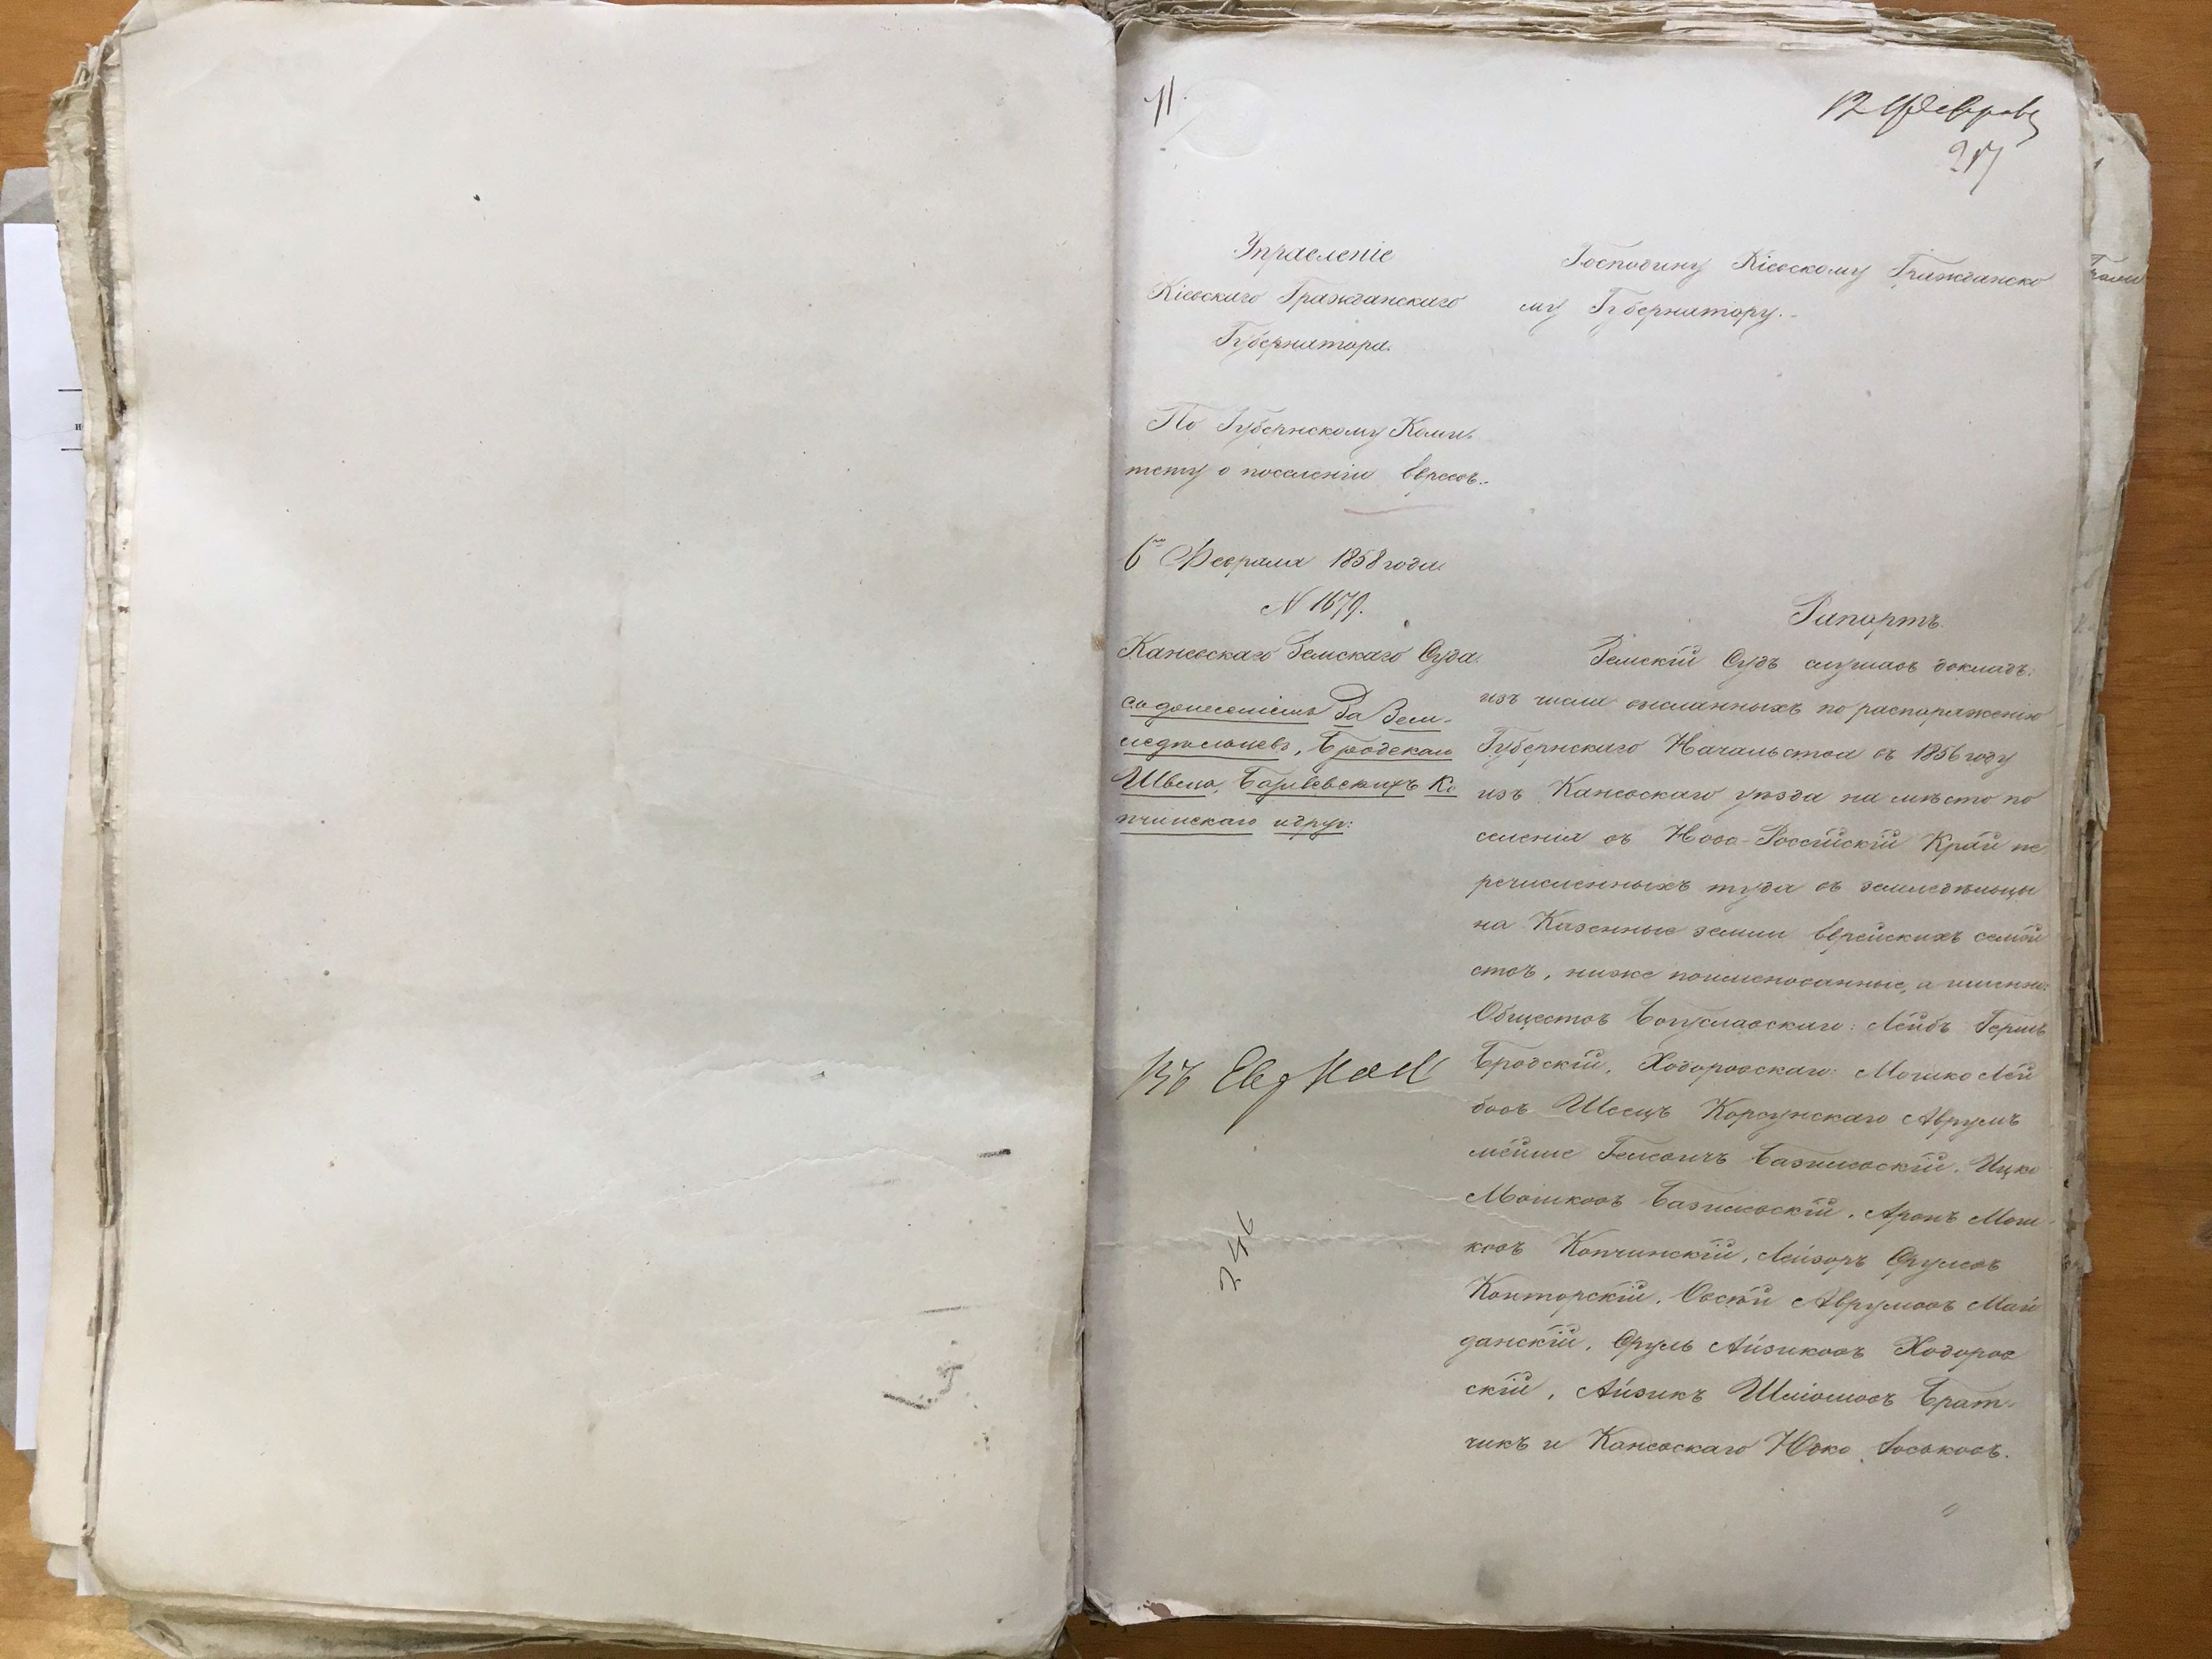 12 Февраля
217
Управленіе
Кіевскаго Гражданскаго
Губернатора.
По Губернскому Коми-
тету о поселеніи Евреевъ.
6го Февраля 1858 года
N 1679.
Каневскаго Земскаго Суда.
съ донесеніемъ За Зем-
ледельцевъ, Бродскаго
Швеца, Ко
пчинскаго и друг:
Господину Кіевскому Гражданско
му Губернатору.
Рапортъ.
Земскій Судъ слушавъ докладъ:
изъ числа высланныхъ по распоряженію
Губернскаго Начальства въ 1856 году
изъ Каневскаго уѣзда на мѣсто по
селенія въ Ново-Россійскій Край пе
речисленныхъ туда въ земледѣльцы
на Казенные земли Еврейскихъ семѣй
ствъ, ниже поименованные, а именно:
Обществъ Богуславскаго: Лейбъ Герш
Бродскій, Ходоровскаго: Мошко Лей
бовъ Швецъ Корсунскаго Аврумъ
мейше Базилевскій. Ицко
Мошковъ Базилевскій. Аронъ Мош-
ковъ Копчинскій, Лейзоръ Срулевъ
Конторскій. Овсѣй Аврумовъ Май
данскій. Сруль Айзиковъ Ходоров
скій, Айзикъ Шліомовъ Брат-
чикъ и Каневскаго Юско Іоськовъ.